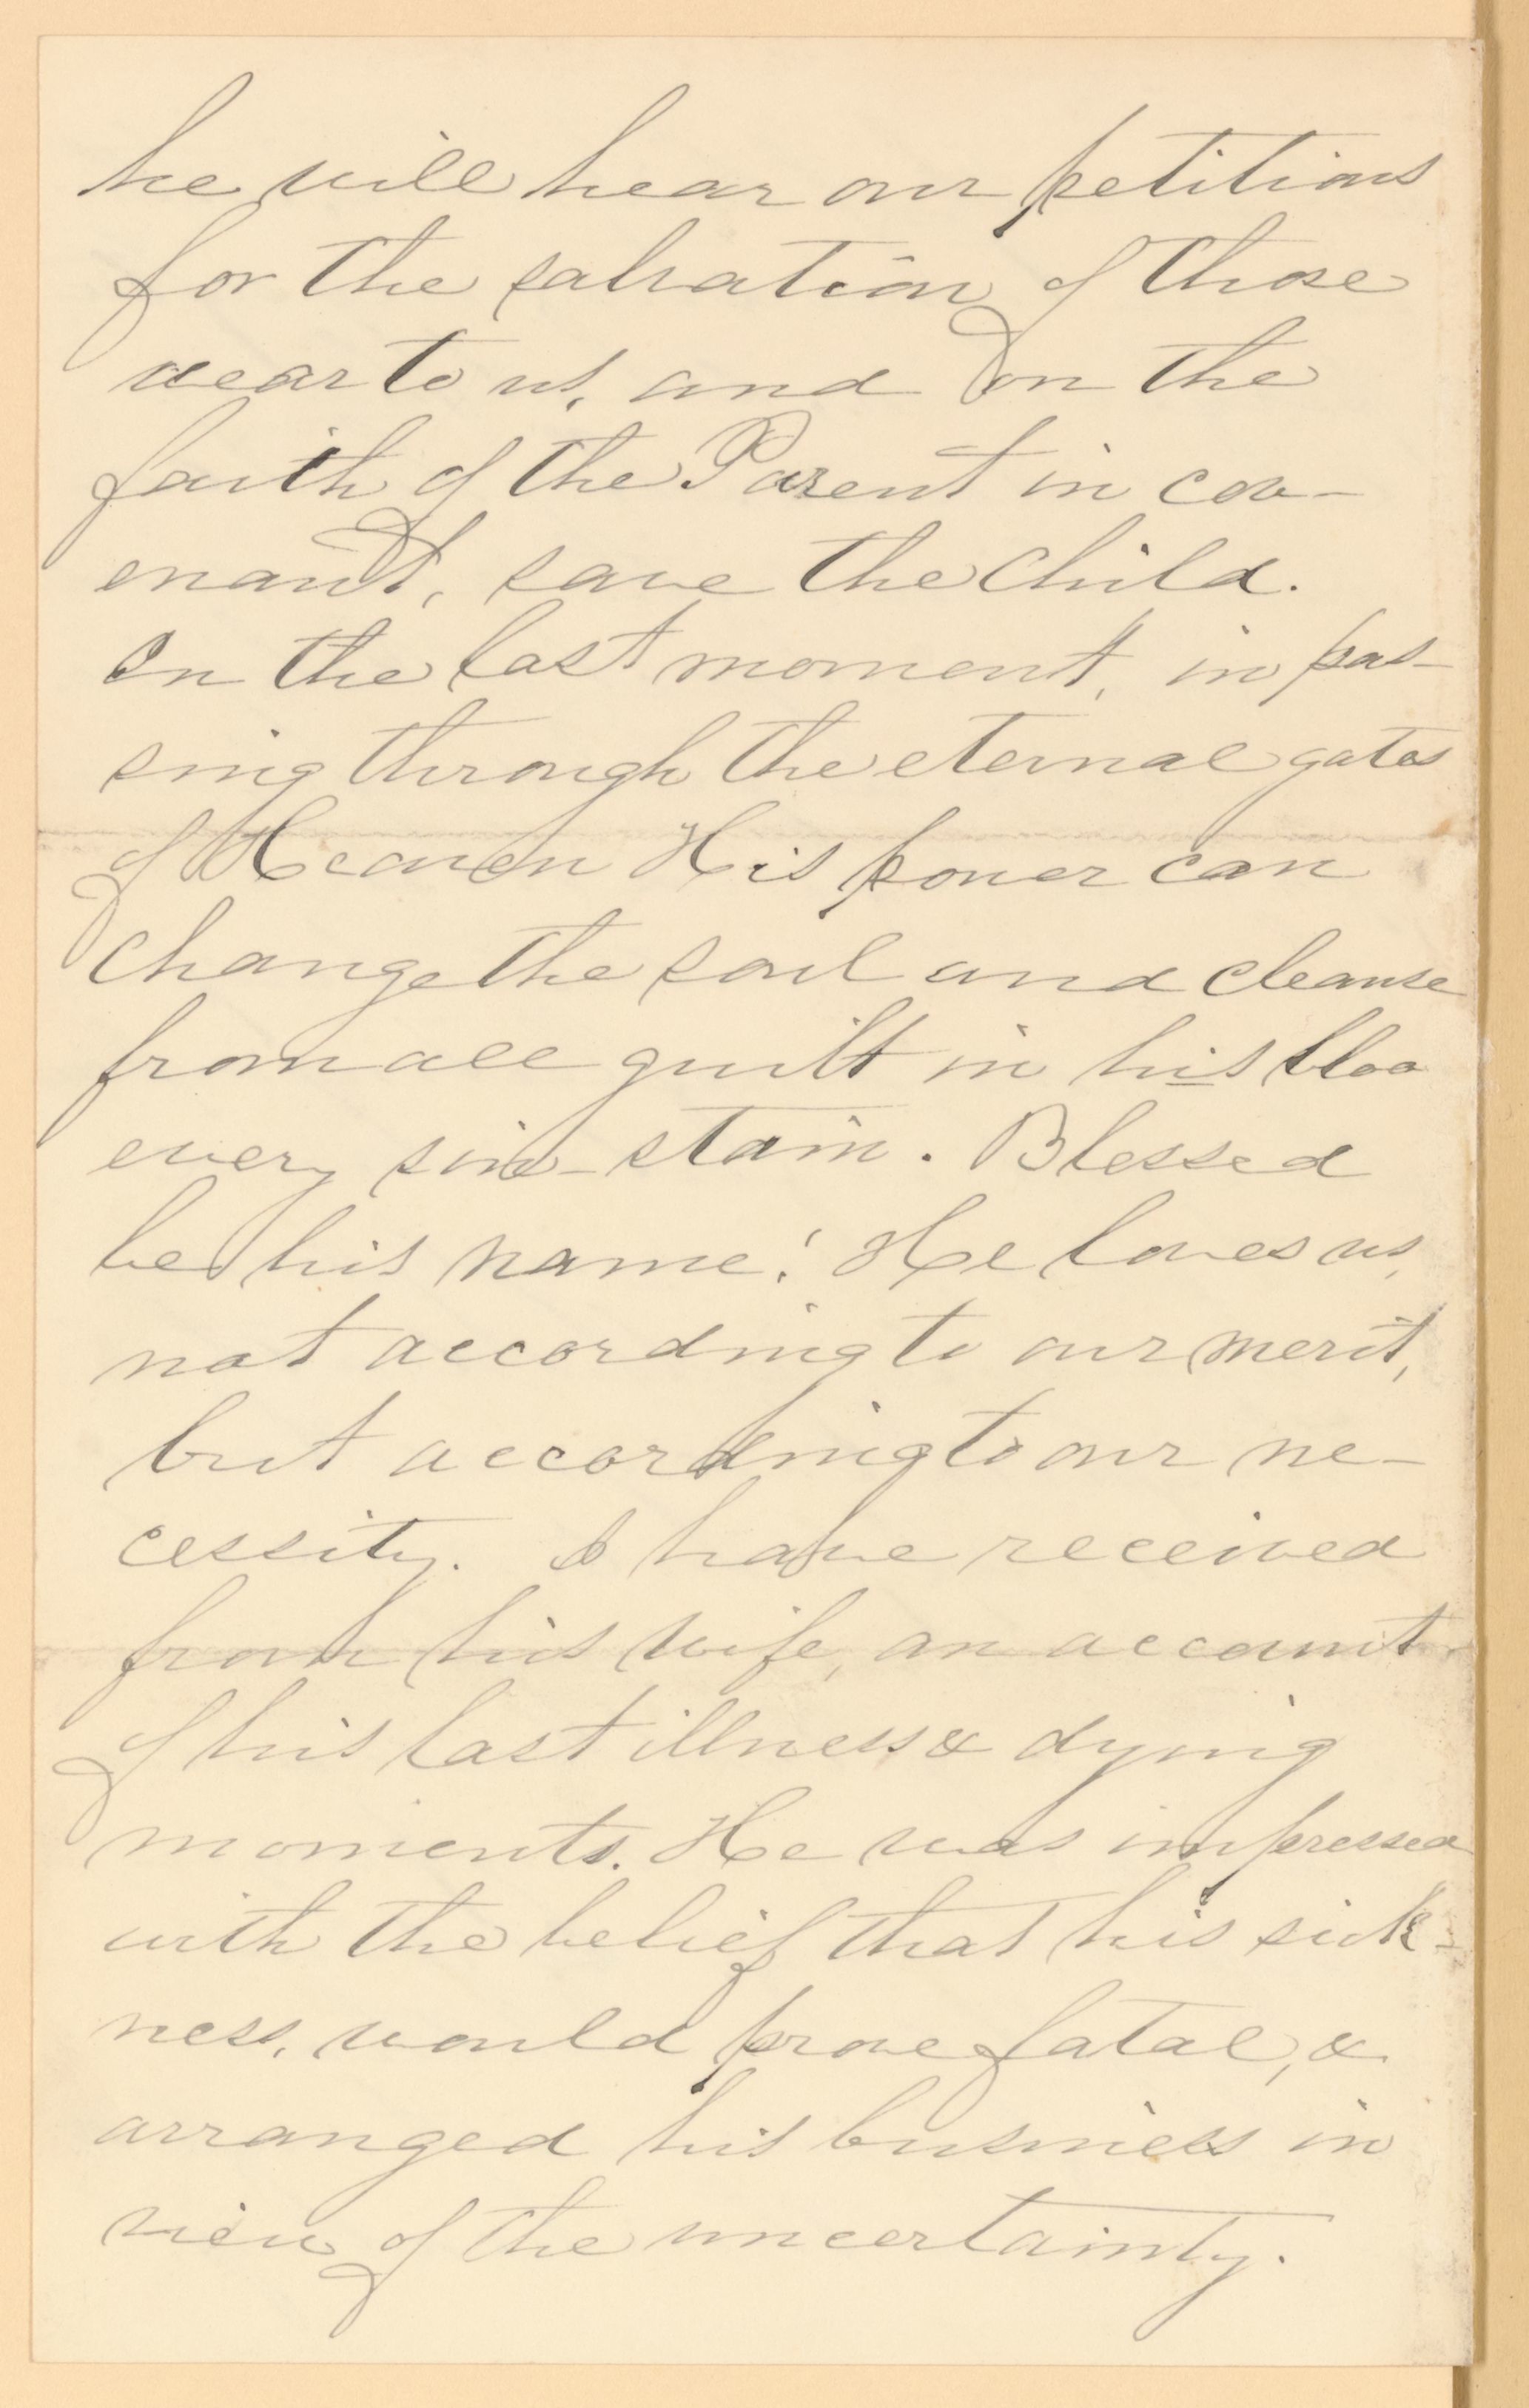 he will hear our petitions
for the salvation of those
near to us, and on the
faith of the Parent in cov-
enant, save the child.
In the last moment, in pas-
sing through the eternal gates
of Heaven His power can
change the soul and cleanse
from all guilt in his bloo
every sin-stain. Blessed
be his name! He loves us,
not according to our merit,
but according to our ne-
cessity. I have received
from his wife, an account
of his last illness & dying
moments. He was impressed
with the belief that his sick-
ness, would prove fatal, &
arranged his business in
view of the uncertainty.